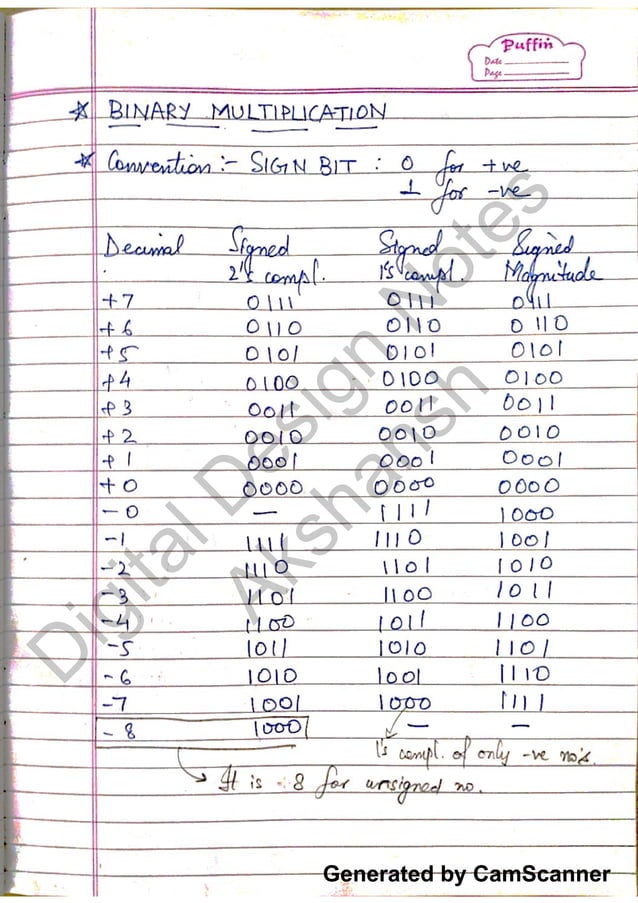 Puffin
Date
Page
☆ BINARY MULTIPLICATION
☆ Convention:- SIGN BIT : 0 for +ve
1 for -ve
Decimal Signed Signed Signed
2's compl. 1's compl. Magnitude
+7 0111 0111 0111
+6 0110 0110 0110
+5 0101 0101 0101
+4 0100 0100 0100
+3 0011 0011 0011
+2 0010 0010 0010
+1 0001 0001 0001
+0 0000 0000 0000
-0 — 1111 1000
-1 1111 1110 1001
-2 1110 1101 1010
-3 1101 1100 1011
-4 1100 1011 1100
-5 1011 1010 1101
-6 1010 1001 1110
-7 1001 1000 1111
-8 1000 — —
1's compl. of only -ve no's.
It is 8 for unsigned no.
Digital Design Notes
Akshansh
Generated by CamScanner